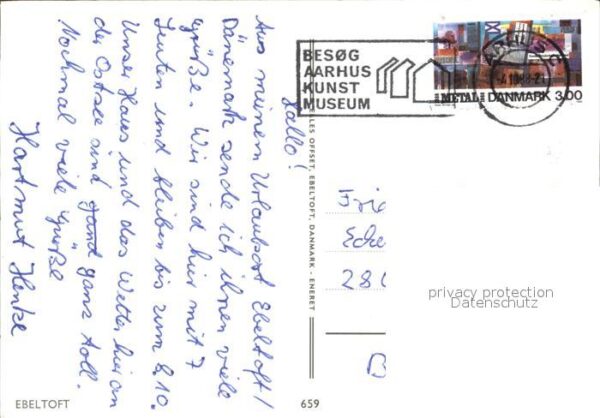 Hallo!
Aus meinem Urlaubsort Ebeltoft /
Dänemark sende ich ihnen viele
Grüße. Wir sind hier mit 7
Leuten und bleiben bis zum 8.10.
Unser Haus und das Wetter hier an
der Ostsee sind ganz toll.
Nochmal viele Grüße
Hartmut Henke
BESØG
AARHUS
KUNST
MUSEUM
AARHUS C
METAL DANMARK 3.00
LES OFFSET, EBELTOFT, DANMARK - ENERET
Frie
Ecke
280
privacy protection
Datenschutz
B
EBELTOFT
659